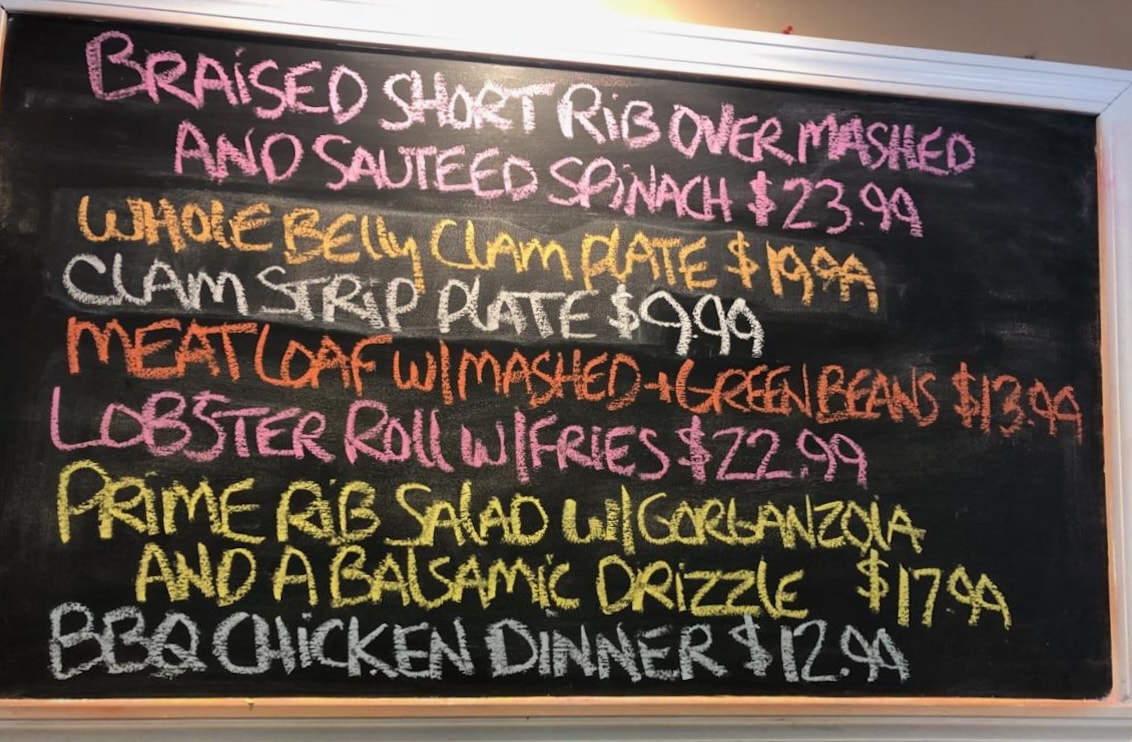 BRAISED SHORT RIB OVER MASHED
AND SAUTEED SPINACH $23.99
WHOLE BELLY CLAM PLATE $19.99
CLAM STRIP PLATE $9.99
MEATLOAF W/MASHED + GREEN BEANS $13.99
LOBSTER ROLL W/FRIES $22.99
PRIME RIB SALAD W/GORGANZOLA
AND A BALSAMIC DRIZZLE $17.99
BBQ CHICKEN DINNER $12.99